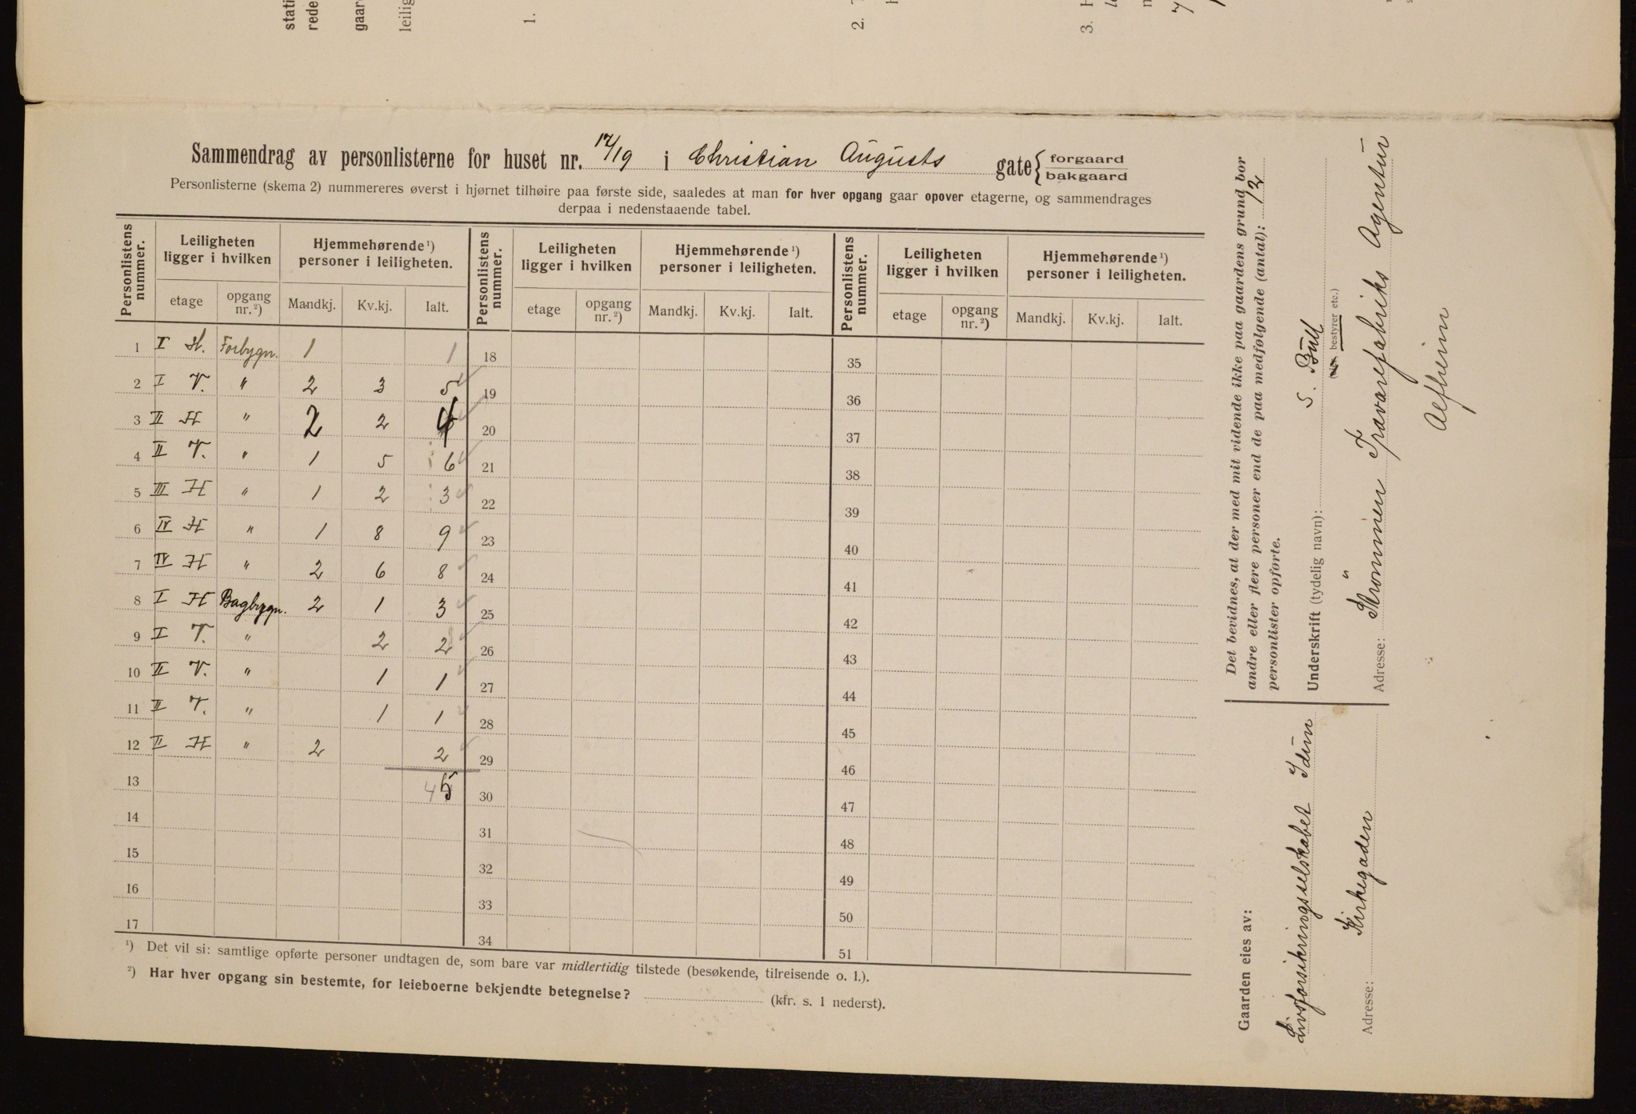 stati
rede
gaar
leilig
1.
2.
3.
Sammendrag av personlisterne for huset nr. 17/19 i Christian Augusts gate { forgaard bakgaard
Personlisterne (skema 2) nummereres øverst i hjørnet tilhøire paa første side, saaledes at man for hver opgang gaar opover etagerne, og sammendrages
derpaa i nedenstaaende tabel.
Personlistens nummer. Leiligheten ligger i hvilken Hjemmehørende ¹) personer i leiligheten. Personlistens nummer. Leiligheten ligger i hvilken Hjemmehørende ¹) personer i leiligheten. Personlistens nummer. Leiligheten ligger i hvilken Hjemmehørende ¹) personer i leiligheten.
etage opgang nr. ²) Mandkj. Kv.kj. Ialt. etage opgang nr. ²) Mandkj. Kv.kj. Ialt. etage opgang nr. ²) Mandkj. Kv.kj. Ialt.
1 I H. Forbygn. 1 1 18 35
2 I V. " 2 3 5 19 36
3 II H " 2 2 4 20 37
4 II V. " 1 5 6 21 38
5 III H " 1 2 3 22 39
6 IV H " 1 8 9 23 40
7 IV H " 2 6 8 24 41
8 I H Bagbygn. 2 1 3 25 42
9 I V. " 2 2 26 43
10 II V. " 1 1 27 44
11 II V. " 1 1 28 45
12 II H " 2 2 29 46
13 45 30 47
14 31 48
15 32 49
16 33 50
17 34 51
¹) Det vil si: samtlige opførte personer undtagen de, som bare var midlertidig tilstede (besøkende, tilreisende o. l.).
²) Har hver opgang sin bestemte, for leieboerne bekjendte betegnelse? (kfr. s. 1 nederst).
Det bevidnes, at der med mit vidende ikke paa gaardens grund bor
andre eller flere personer end de paa medfølgende (antal): 12
personlister opførte.
Underskrift (tydelig navn): S. Bull
bestyrer etc.)
Adresse: Strømmen Trævarefabriks Agentur
Gaarden eies av:
Livsforsikringsselskabet Idun
Adresse: Kirkegaden